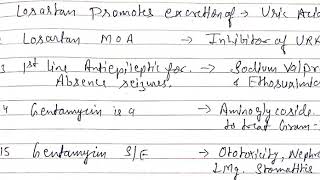 Losartan Promotes excretion of → Uric Acid
Losartan MOA → Inhibitor of URA
3 1st line Antiepileptic for → Sodium Valpr
Absence seizures. & Ethosuximid
4 Gentamycin is a → Aminoglycoside
to treat Gram-
15 Gentamycin S/E → Ototoxicity, Neph
Stomatitis